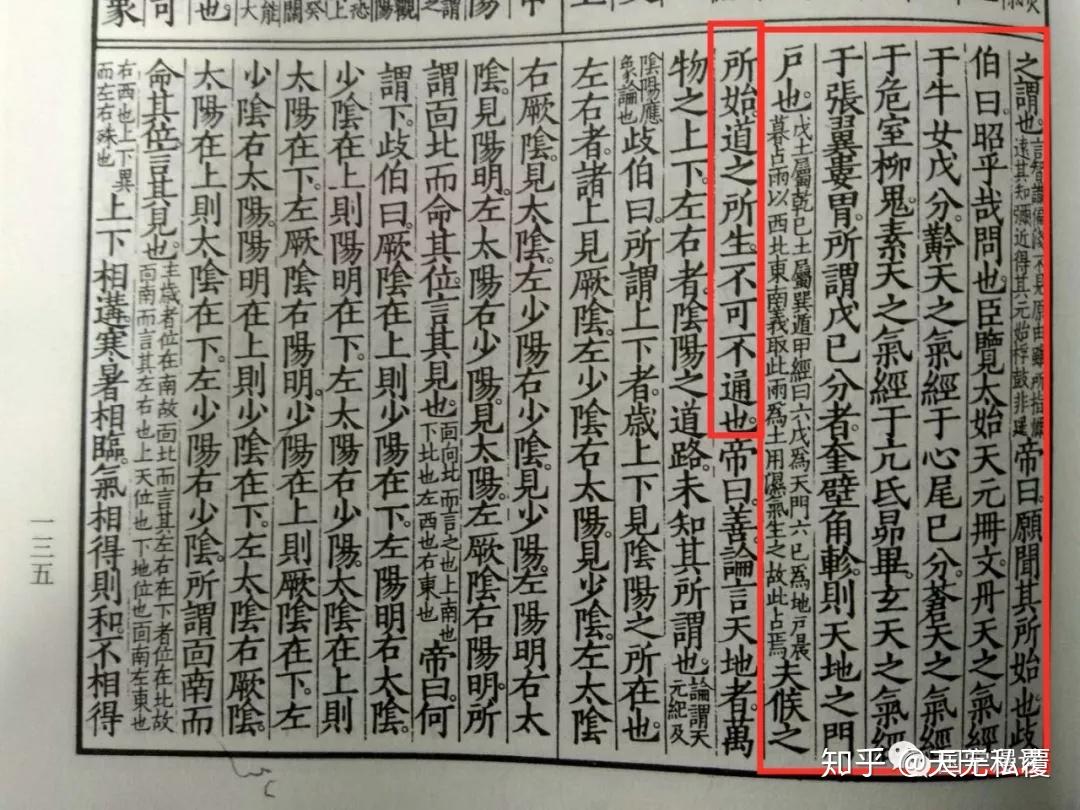 之謂也言智識偏淺不見原由雖所指彌遠其知彌近得其元始桴鼓非遥帝曰。願聞其所始也歧
伯曰。昭乎哉問也。臣覽太始天元冊文。丹天之氣經
于牛女戊分。黅天之氣。經于心尾己分。蒼天之氣。經
于危室柳鬼。素天之氣經于亢氐昴畢。玄天之氣經
于張翼婁胃。所謂戊己分者。奎壁角軫。則天地之門
戶也。戊土屬乾己土屬巽遁甲經曰六戊為天門六己為地戶晨暮占雨以西北東南義取此雨為土用濕氣生之故此占焉夫候之
所始。道之所生。不可不通也。帝曰。善。論言天地者。萬
物之上下。左右者。陰陽之道路。未知其所謂也。論謂天元紀及
陰陽應象論也歧伯曰。所謂上下者。歲上下見陰陽之所在也。
左右者。諸上見厥陰。左少陰右太陽。見少陰。左太陰
右厥陰。見太陰。左少陽右少陰。見少陽。左陽明右太
陰。見陽明。左太陽右少陽。見太陽。左厥陰右陽明。所
謂面北而命其位。言其見也。面向北而言之也上南也下北也左西也右東也帝曰。何
謂下。歧伯曰。厥陰在上則少陽在下。左陽明右太陰。
少陰在上則陽明在下。左太陽右少陽。太陰在上則
太陽在下。左厥陰右陽明。少陽在上則厥陰在下。左
少陰右太陽。陽明在上則少陰在下。左太陰右厥陰。
太陽在上則太陰在下。左少陽右少陰。所謂面南而
命其位。言其見也。主歲者位在南故面北而言其左右在下者位在北故面南而言其左右也上天位也下地位也面南左東也
右西也上下異而左右殊也上下相遘。寒暑相臨。氣相得則和。不相得
一三五
知乎 @天无私覆